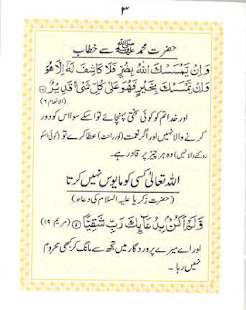 ۳
حضرت محمد ﷺ سے خطاب
وَاِنْ يَّمْسَسْكَ اللّٰهُ بِضُرٍّ فَلَا كَاشِفَ لَهٗٓ اِلَّا هُوَ
وَاِنْ يَّمْسَسْكَ بِخَيْرٍ فَهُوَ عَلٰى كُلِّ شَيْءٍ قَدِيْرٌ
(الانعام ۶)
اور خدا تم کو کوئی سختی پہنچائے تو اسکے سوا اس کو دور
کرنے والا نہیں اور اگر نعمت (اور راحت) عطا کرے تو (کوئی اسکو
روکنے والا نہیں) وہ ہر چیز پر قادر ہے۔
اللہ تعالیٰ کسی کو مایوس نہیں کرتا
(حضرت زکریا علیہ السلام کی دعاء)
وَّلَمْ اَكُنْۢ بِدُعَآئِكَ رَبِّ شَقِيًّا (مریم ۱۹)
اور اے میرے پروردگار میں تجھ سے مانگ کر کبھی محروم
نہیں رہا۔